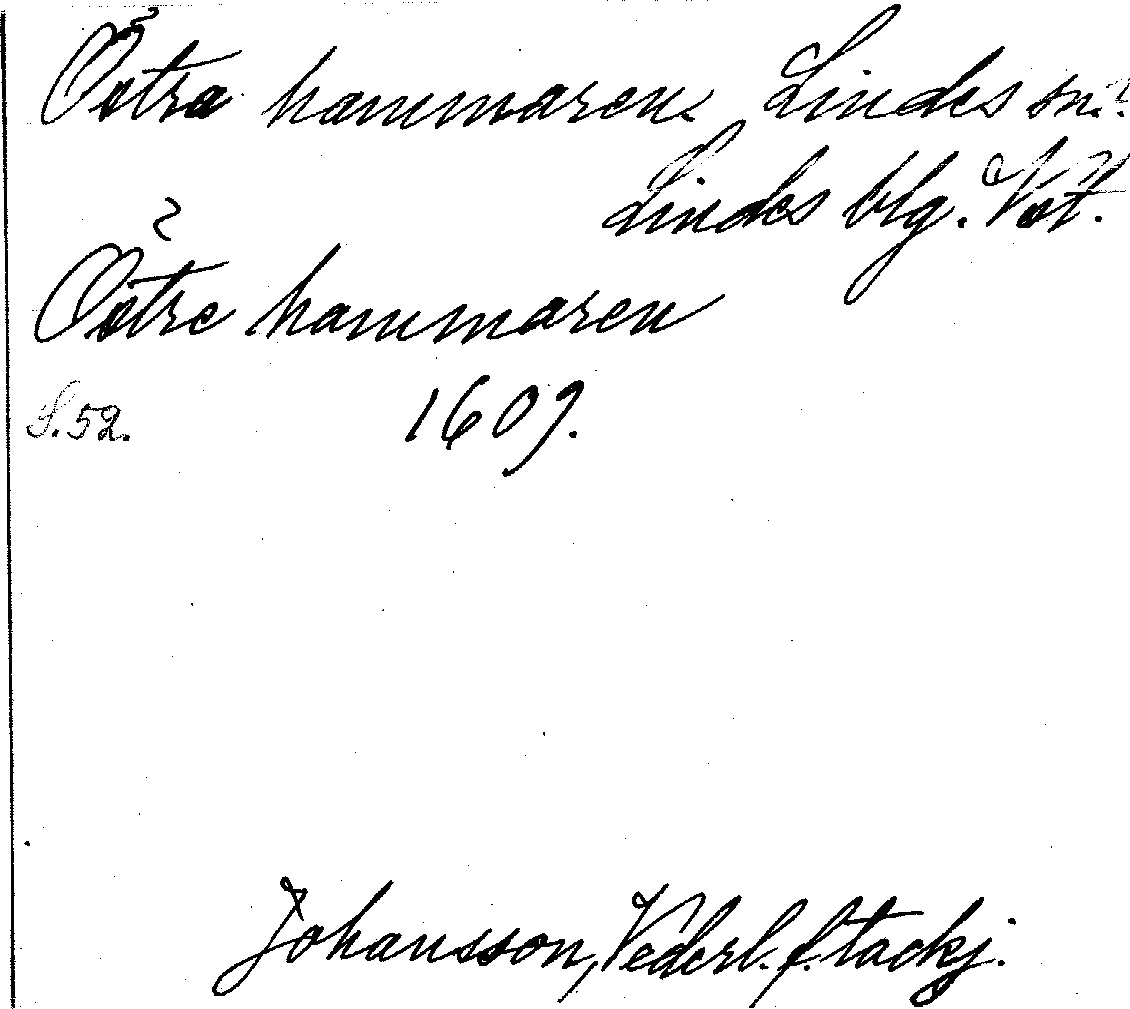 Östra hammaren. Lindes sn.?
Lindes blg. Vst.
Östre hammaren
S. 52. 1609.
Johansson, Vederl. f. tackj.